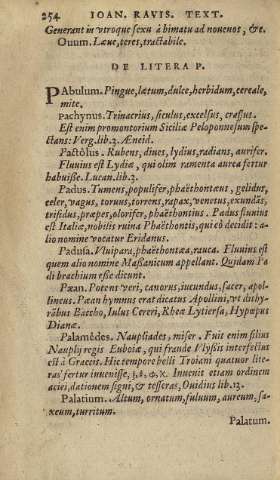 254 IOAN. RAVIS. TEXT.
Generant in vtroque sexu à bimatu ad nouenos, &c.
Ouum. Læue, teres, tractabile.
DE LITERA P.
PAbulum. Pingue, lætum, dulce, herbidum, cereale,
mite.
Pachynus. Trinacrius, siculus, excelsus, crassus.
Est enim promontorium Siciliæ Peloponnesum spe-
ctans: Verg. lib. 3. Æneid.
Pactôlus. Rubens, diues, lydius, radians, aurifer.
Fluuius est Lydiæ, qui olim ramenta aurea fertur
habuisse. Lucan. lib. 3.
Padus. Tumens, populifer, phaëthontæus, gelidus,
celer, vagus, toruus, torrens, rapax, venetus, exundãs,
trifidus, præpes, olorifer, phaëthontius. Padus fluuius
est Italiæ, nobilis ruina Phaëthontis, qui eò decidit: a-
lio nomine vocatur Eridanus.
Padusa. Vluipara, phaëthontæa, rauca. Fluuius est
quem alio nomine Massanicum appellant. Quidam Pa
di brachium esse dicunt.
Pæan. Potens veri, canorus, iucundus, sacer, apol-
lineus. Pæan hymnus erat dicatus Apollini, vt dithy-
râbus Baccho, Iulus Cereri, Rhea Lytiersa, Hypæpus
Dianæ.
Palamêdes. Naupliades, miser. Fuit enim filius
Nauplij regis Euboiæ, qui fraude Vlyssis interfectus
est à Græcis. Hic tempore belli Troiani quatuor lite-
ras fertur inuenisse, Inuenit etiam ordinem
aciei, dationem signi, & tesseras, Ouidius lib. 13.
Palatium. Altum, ornatum, fuluum, aureum, sa-
xeum, turritum.
Palatum.